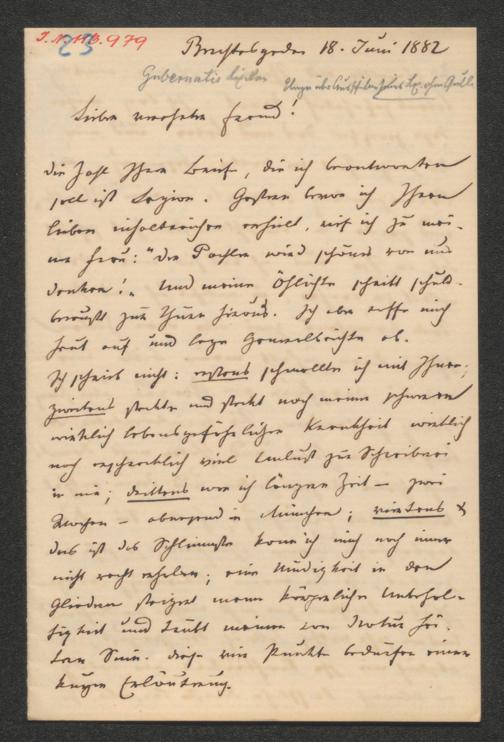 I.N. 143.979
25
Berchtesgaden 18. Juni 1882
Gubernatis Lexikon
Liebe verehrte Freund!
die Zahl Ihrer Briefe, die ich beantworten
soll ist Legion. Gestern bevor ich Ihren
lieben inhaltreichen erhielt, rief ich zu mei-
ner Frau: "Die Paoli wird schönes von uns
denken!" Und meine Ehliebste schritt schuld-
bewußt zur Thüre hinaus. Ich aber raffe mich
heut auf und lege Generalbeichte ab.
Ich schrieb nicht: erstens schmollte ich mit Ihnen;
zweitens steckte und steckt noch meine schwere
wirklich lebensgefährliche Krankheit
noch erschrecklich viel Unlust zur Schreiberei
in mir; drittens war ich längere Zeit — zwei
Wochen — abwesend in München; viertens &
das ist das Schlimmste kann ich mich noch immer
nicht recht erholen; eine Müdigkeit in den
Gliedern steigert meine körperliche Unbehol-
fenheit und trübt meinen von Natur hei-
tern Sinn. Diese vier Punkte bedürfen einer
kurzen Erläuterung.